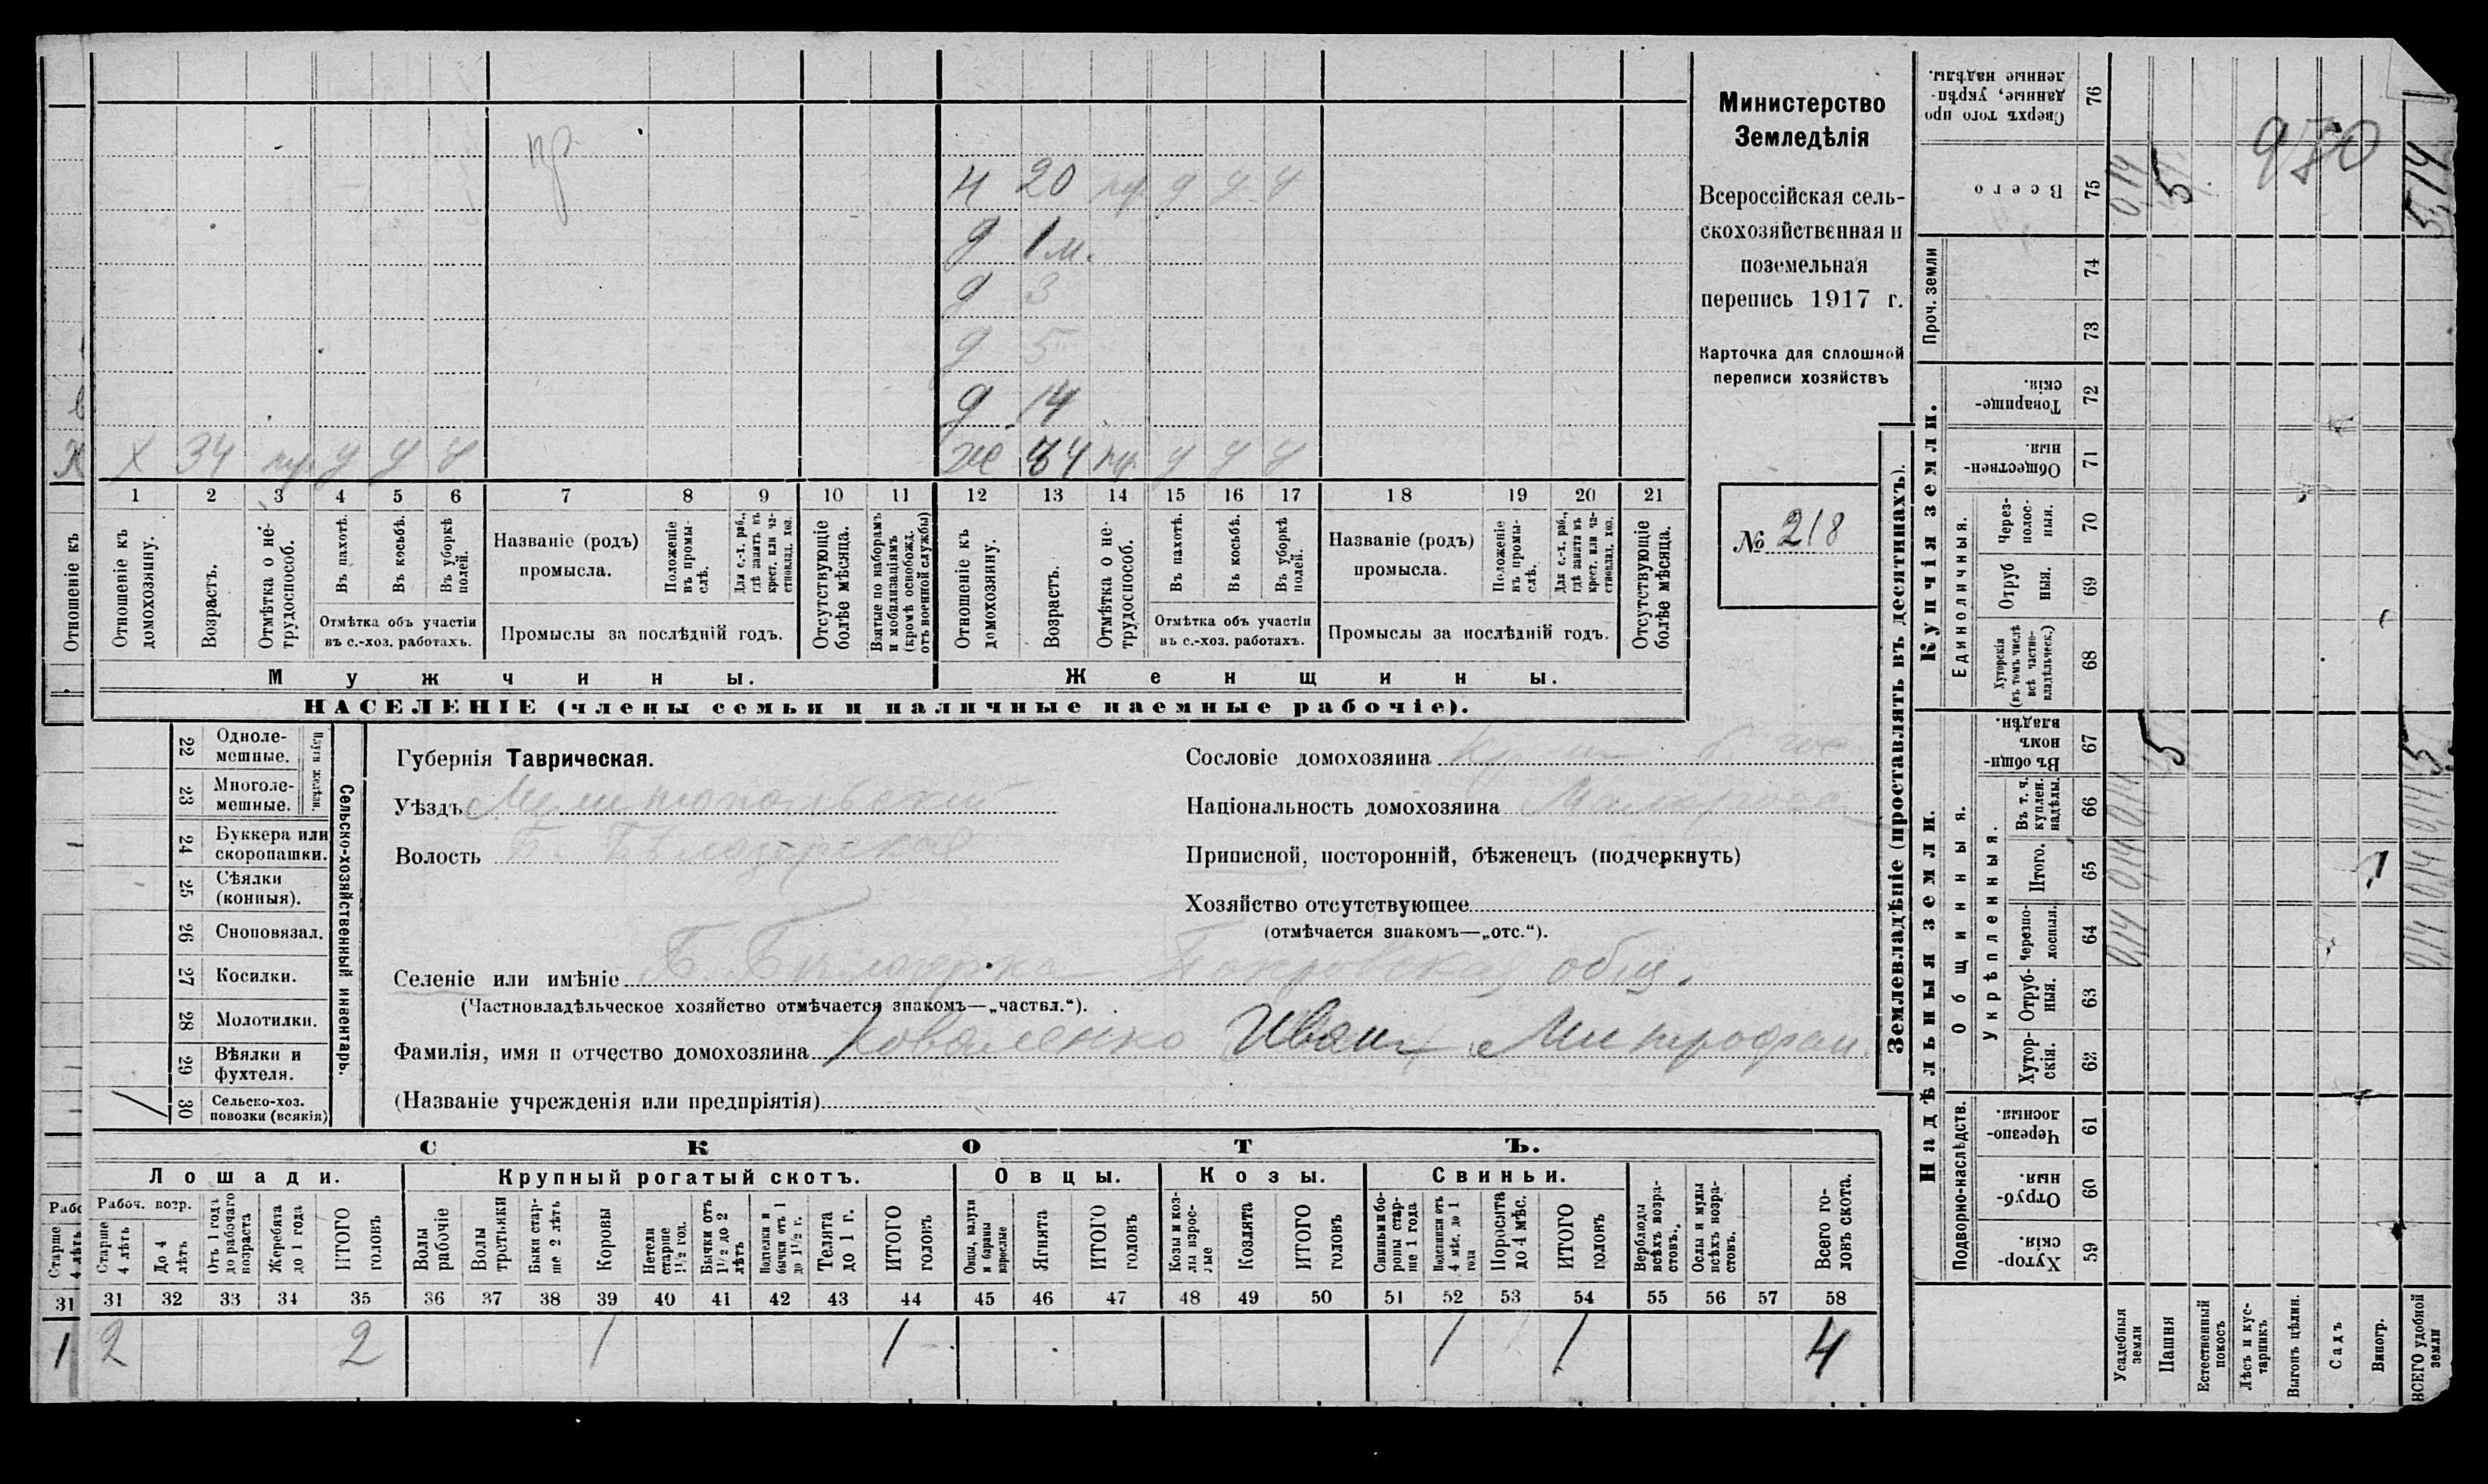 Министерство
Земледѣлія
Всероссійская сель-
скохозяйственная и
поземельная
перепись 1917 г.
Карточка для сплошной
переписи хозяйствъ
№ 218
пр
н 20 пр у у у
д 1 м.
д 3
д 5
д 14
х 34 пр у у у
же 34 пр у у у
1 2 3 4 5 6 7 8 9 10 11 12 13 14 15 16 17 18 19 20 21
Отношеніе къ
Отношеніе къ домохозяину.
Возрастъ.
Отмѣтка о не-трудоспособ.
Въ пахотѣ.
Въ косьбѣ.
Въ уборкѣ полей.
Отмѣтка объ участіи
въ с.-хоз. работахъ.
Названіе (родъ)
промысла.
Положеніе въ промы-слѣ.
Для с.-х. раб., гдѣ занятъ въ крест. или ча-стновлад. хоз.
Промыслы за послѣдній годъ.
Отсутствующіе болѣе мѣсяца.
Взятые по наборамъ и мобилизаціямъ (кромѣ освобожд. отъ военной службы)
Отношеніе къ домохозяину.
Возрастъ.
Отмѣтка о не-трудоспособ.
Въ пахотѣ.
Въ косьбѣ.
Въ уборкѣ полей.
Отмѣтка объ участіи
въ с.-хоз. работахъ.
Названіе (родъ)
промысла.
Положеніе въ промы-слѣ.
Для с.-х. раб., гдѣ занята въ крест. или ча-стновлад. хоз.
Промыслы за послѣдній годъ.
Отсутствующіе болѣе мѣсяца.
Мужчины.
Женщины.
НАСЕЛЕНІЕ (члены семьи и наличные наемные рабочіе).
Сельско-хозяйственный инвентарь.
Плуги желѣзн.
22 Однолемешные.
23 Многолемешные.
24 Буккера или скоропашки.
25 Сѣялки (конныя).
26 Сноповязал.
27 Косилки.
28 Молотилки.
29 Вѣялки и фухтеля.
30 Сельско-хоз. повозки (всякія) 1
Губернія Таврическая.
Уѣздъ Мелитопольскій
Волость Б. Бѣлозерская
Селеніе или имѣніе Б. Бѣлозерка Покровская общ.
(Частновладѣльческое хозяйство отмѣчается знакомъ—„частвл.“).
Фамилія, имя и отчество домохозяина Коваленко Иван Митрофан.
(Названіе учрежденія или предпріятія)
Сословіе домохозяина
Національность домохозяина Малоросс
Приписной, посторонній, бѣженецъ (подчеркнуть)
Хозяйство отсутствующее
(отмѣчается знакомъ—„отс.“).
СКОТЪ.
Лошади.
Крупный рогатый скотъ.
Овцы.
Козы.
Свиньи.
Рабоч. возр.
Старше 4 лѣтъ
До 4 лѣтъ
Отъ 1 года до рабочаго возраста
Жеребята до 1 года
ИТОГО головъ
Волы рабочіе
Волы третьяки
Быки стар-ше 2 лѣтъ
Коровы
Нетели старше 1½ год.
Бычки отъ 1½ до 2 лѣтъ
Подтелки и бычки отъ 1 до 1½ г.
Телята до 1 г.
ИТОГО головъ
Овцы, валухи и бараны взрослые
Ягнята
ИТОГО головъ
Козы и коз-лы взрос-лые
Козлята
ИТОГО головъ
Свиньи и бо-ровы стар-ше 1 года
Подсвинки отъ 4 мѣс. до 1 года
Поросята до 4 мѣс.
ИТОГО головъ
Верблюды всѣхъ возра-стовъ.
Ослы и мулы всѣхъ возра-стовъ.
Всего го-ловъ скота.
31 31 32 33 34 35 36 37 38 39 40 41 42 43 44 45 46 47 48 49 50 51 52 53 54 55 56 57 58
1 2 2 1 1 1 1 4
Землевладѣніе (проставлять въ десятинахъ).
Надѣльныя земли.
Купчія земли.
Проч. земли
Подворно-наслѣдств.
Общинныя.
Укрѣпленныя.
Единоличныя.
59 Хутор-скія.
60 Отруб-ныя.
61 Черезпо-лосныя.
62 Хутор-скія.
63 Отруб-ныя.
64 Черезпо-лосныя.
65 Итого.
66 Въ т. ч. куплен. надѣлы.
67 Въ общи-номъ владѣн.
68 Хуторскія (въ томъ числѣ всѣ частно-владѣльческ.)
69 Отруб ныя.
70 Через-полос-ныя.
71 Обществен-ныя
72 Товарище-скія.
73
74
75 Всего
76 Сверхъ того про данные, укрѣп-ленные надѣлы.
Усадебныя земли 0,14 0,14 0,14 0,14
Пашня 5 5
Естественный покосъ
Лѣсъ и кус-тарникъ
Выгонъ цѣлин.
Садъ
Виногр. 1
ВСЕГО удобной земли 0,14 0,14 0,14 5 5,14
930